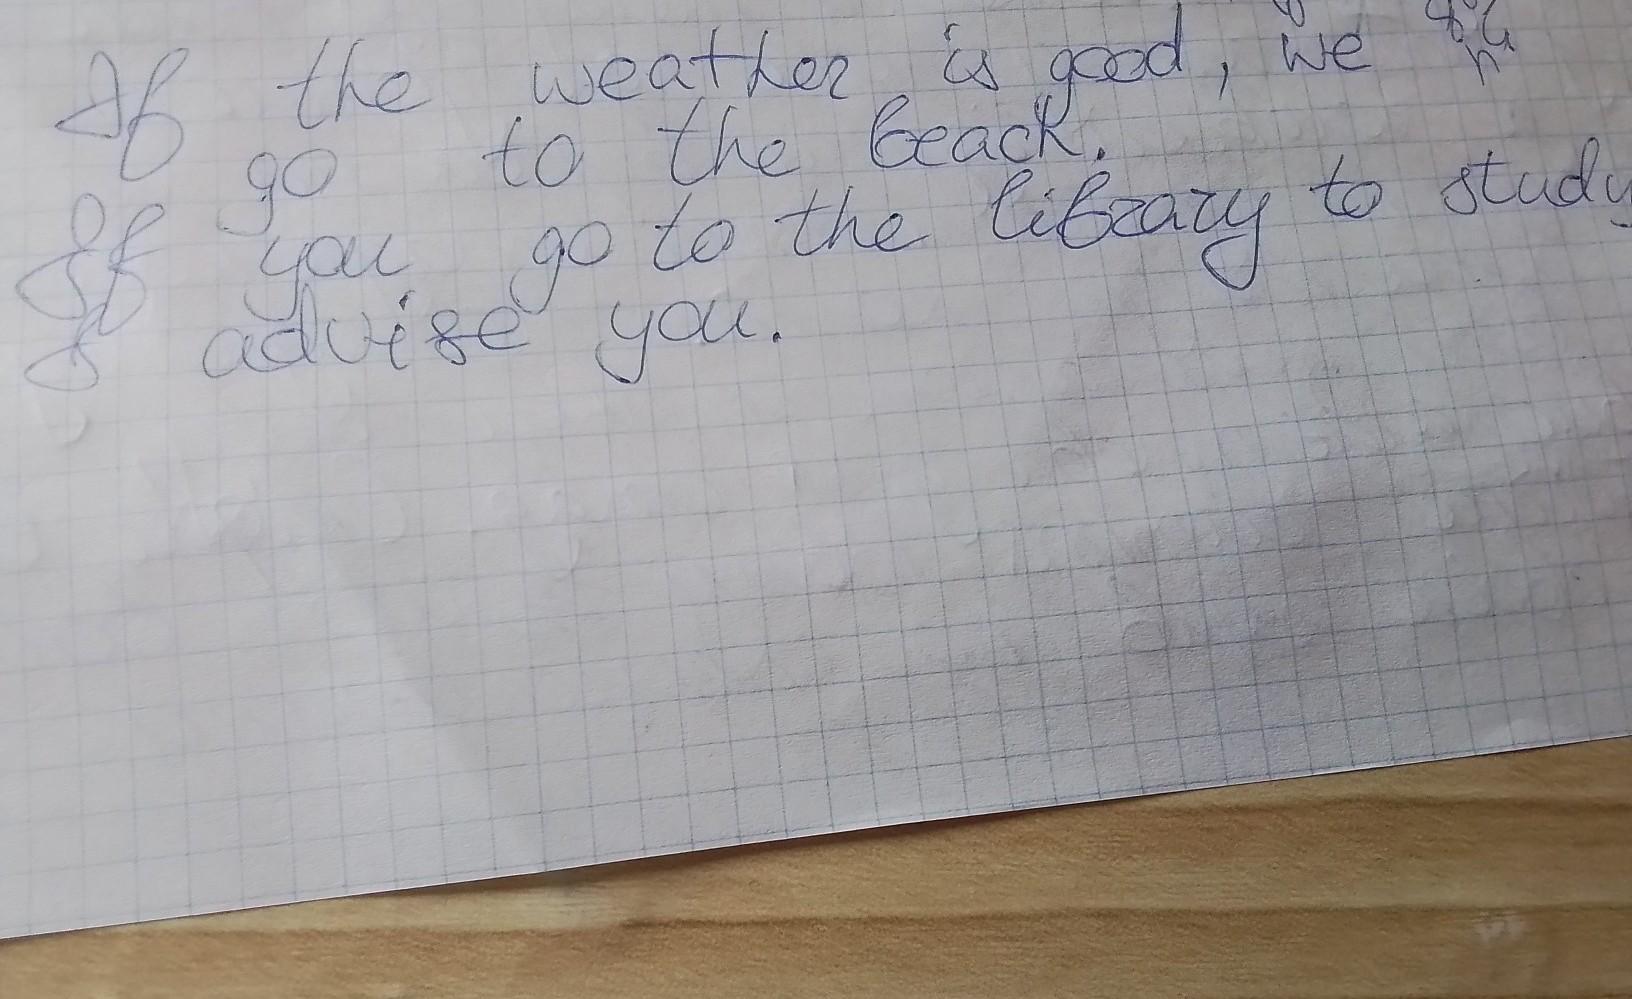 If the weather is good, we
go to the beach.
If you go to the library to study
I advise you.